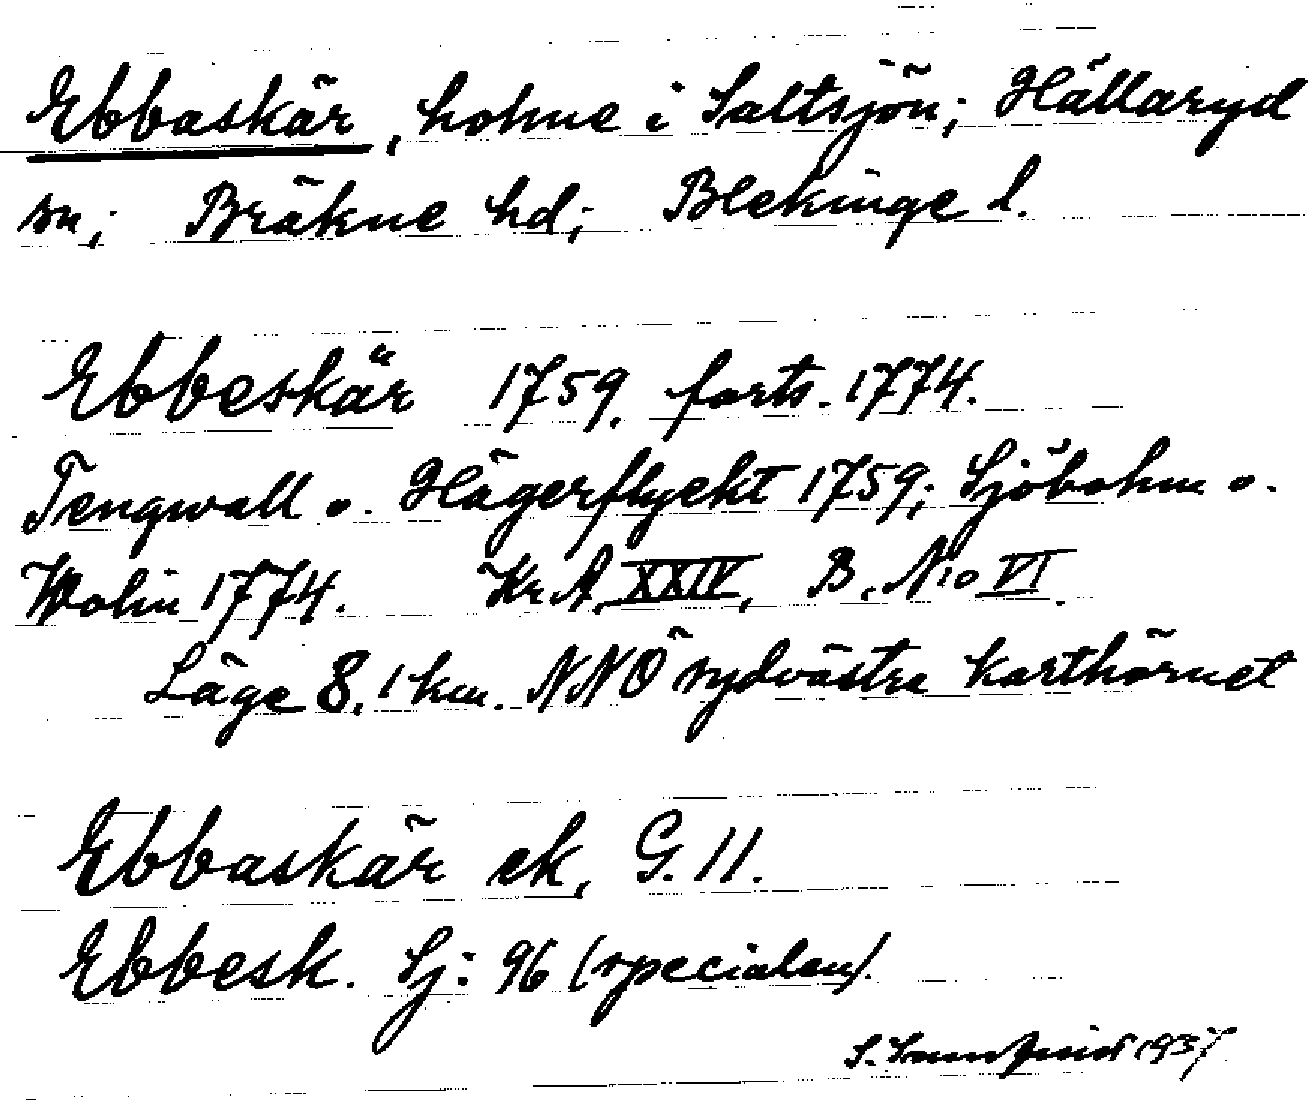 Ebbaskär, holme i Saltsjön; Hällaryd
sn; Bräkne hd; Blekinge l.
Ebbeskär 1759. forts. 1774.
Tengwall o. Hägerflyckt 1759; Sjöbohm o.
Wolin 1774. Kr.A. XXIV, B. No VI.
Läge 8,1 km. NNÖ sydvästra karthörnet
Ebbaskär ek, G. 11.
Ebbesk. Sj: 96 (specialen).
S. 1937